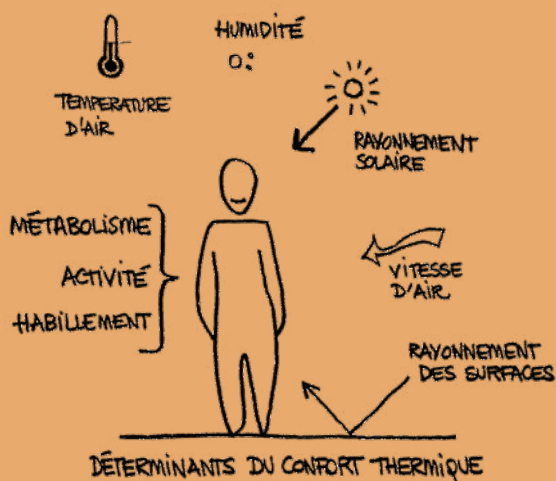 HUMIDITÉ
TEMPERATURE
D'AIR
RAYONNEMENT
SOLAIRE
MÉTABOLISME
ACTIVITÉ
HABILLEMENT
VITESSE
D'AIR
RAYONNEMENT
DES SURFACES
DÉTERMINANTS DU CONFORT THERMIQUE